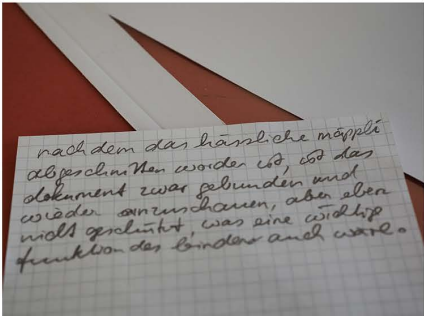 nachdem das hässliche mäppli
abgeschnitten worden ist, ist das
dokument zwar gebunden und
wieder anzuschauen, aber eben
nicht geschützt, was eine wichtige
funktion des bindens auch wäre.